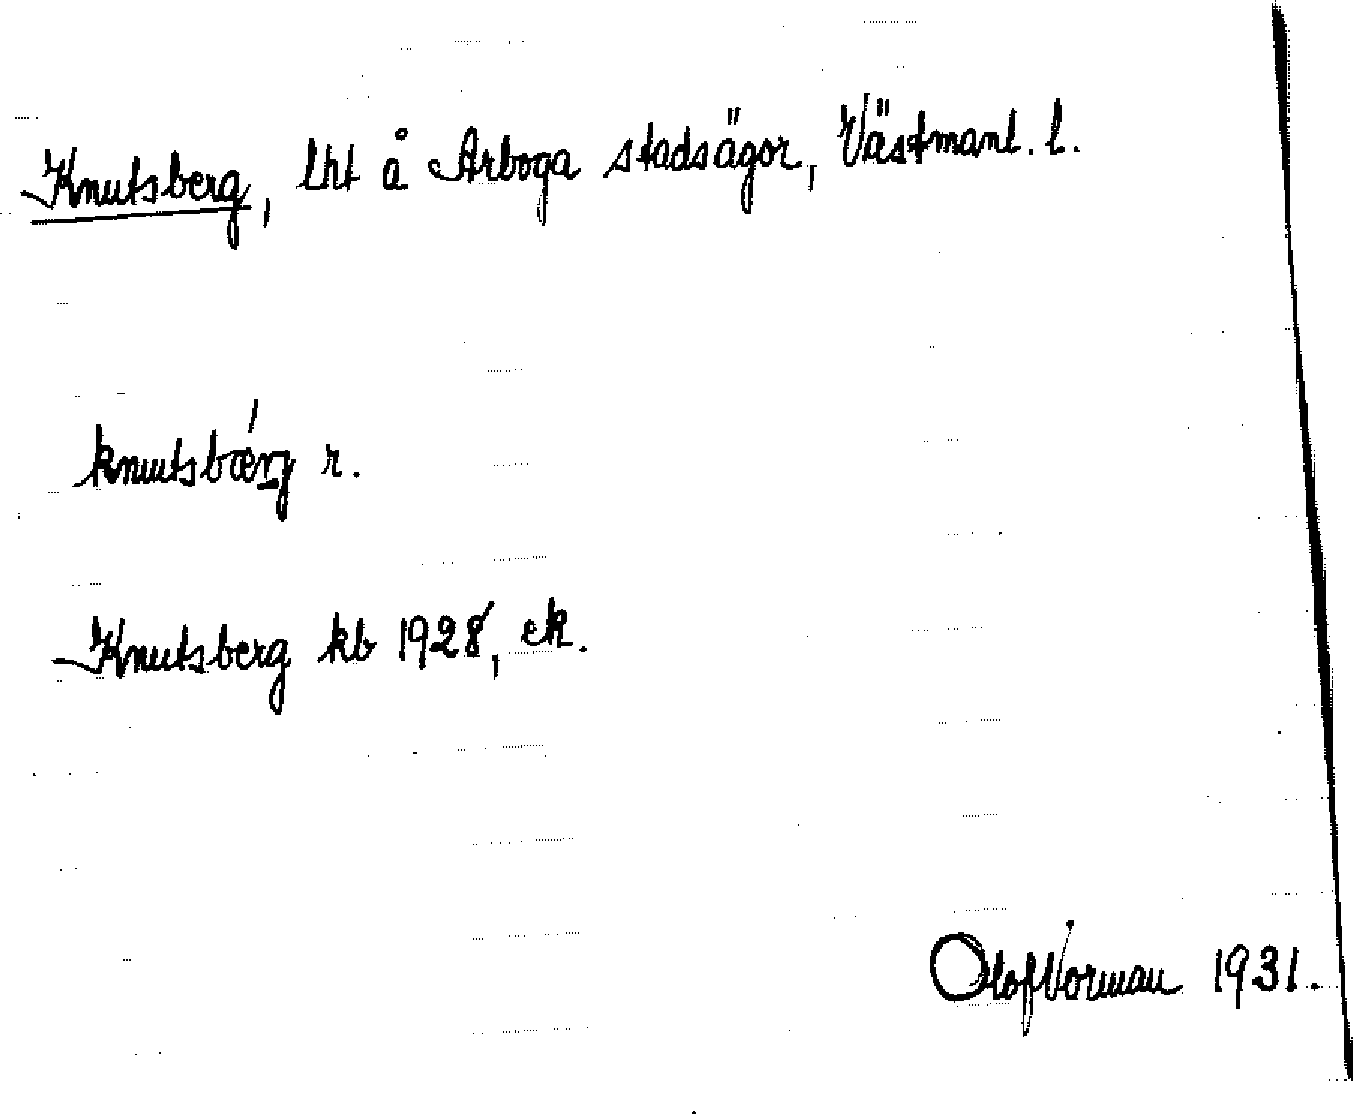 Knutsberg, lht å Arboga stadsägor, Västmanl. l.
knutsbærg r.
Knutsberg kb 1928, ek.
Olof Vorman 1931.